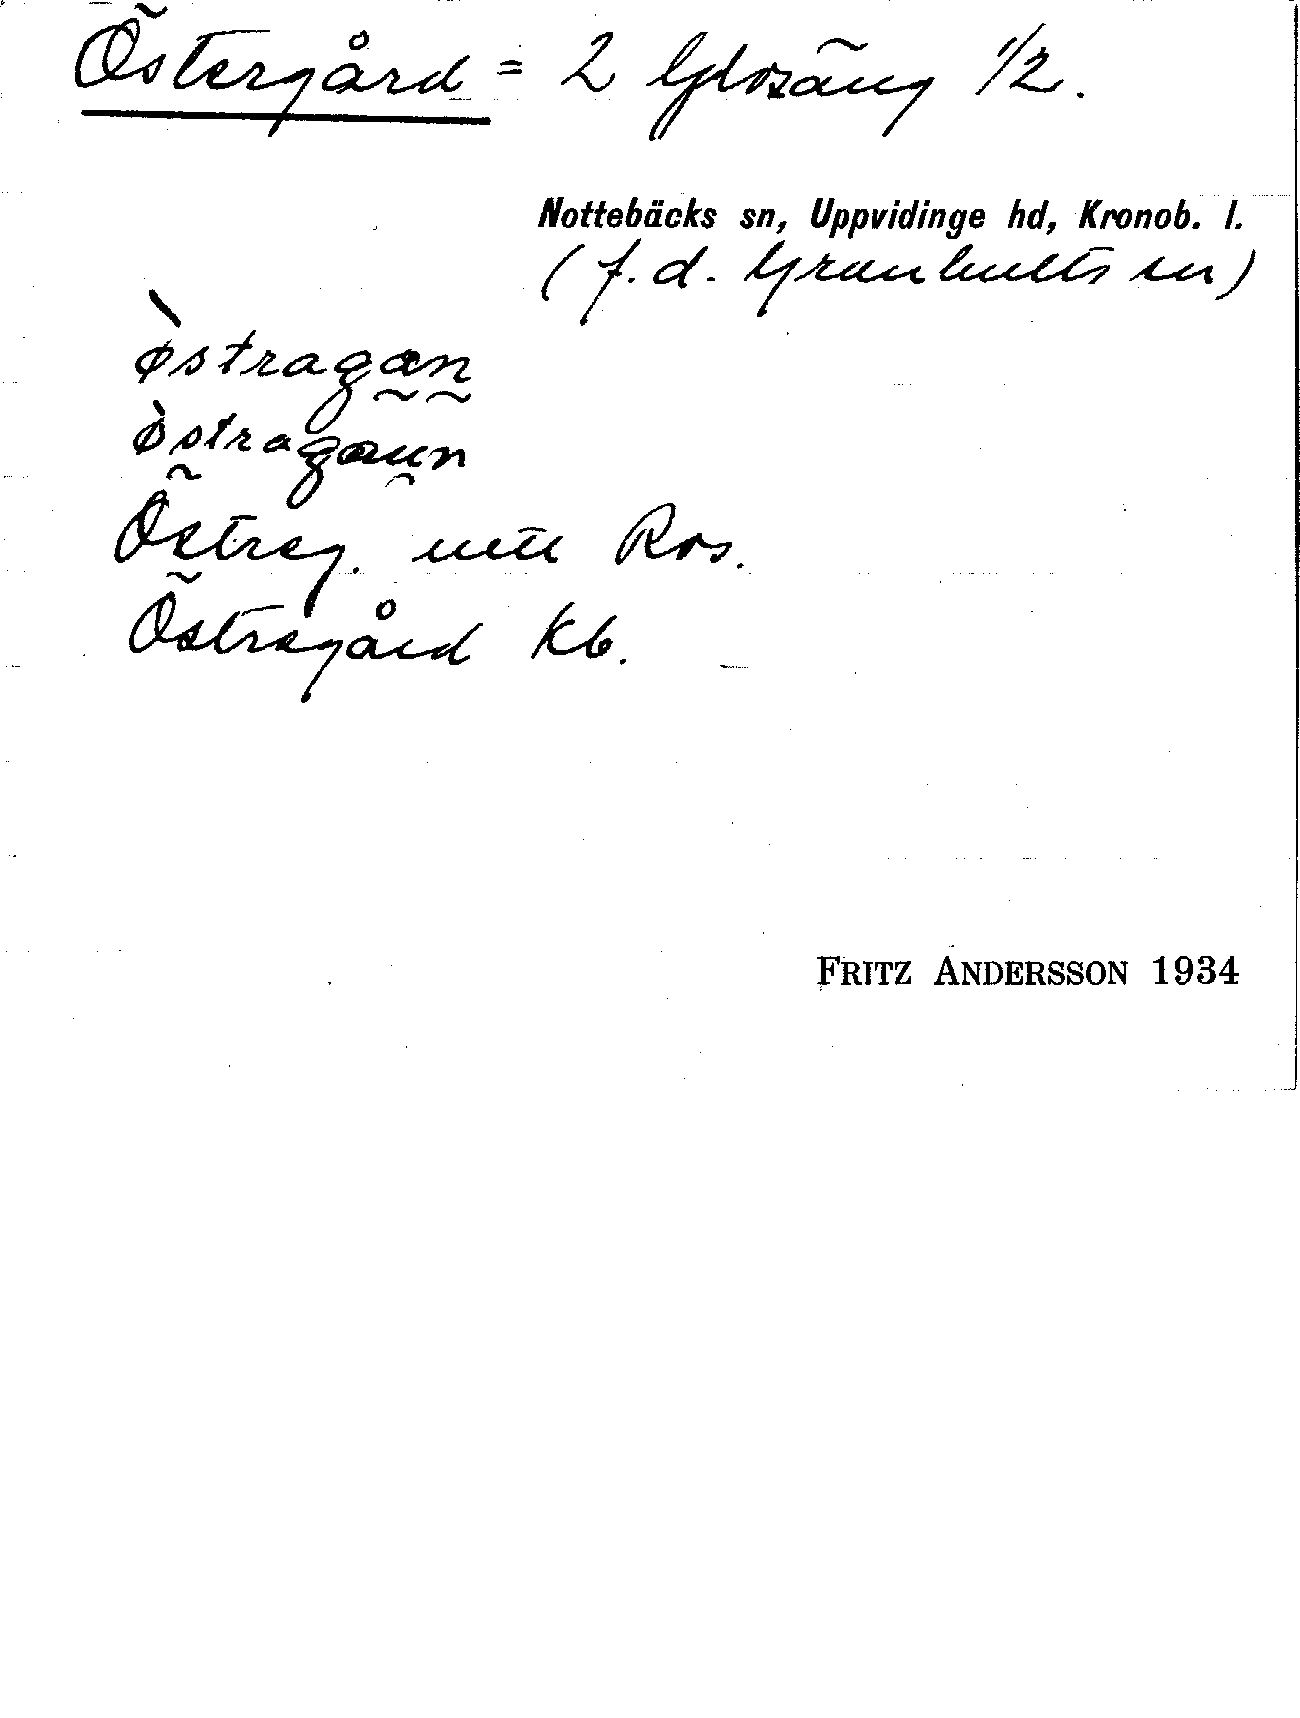 Östergård = 2 Glosäng 1/2.
Nottebäcks sn, Uppvidinge hd, Kronob. l.
(f.d. Granhults sn)
østragan
østragaun
Östreg. utt Ros.
Östregård Kb.
FRITZ ANDERSSON 1934